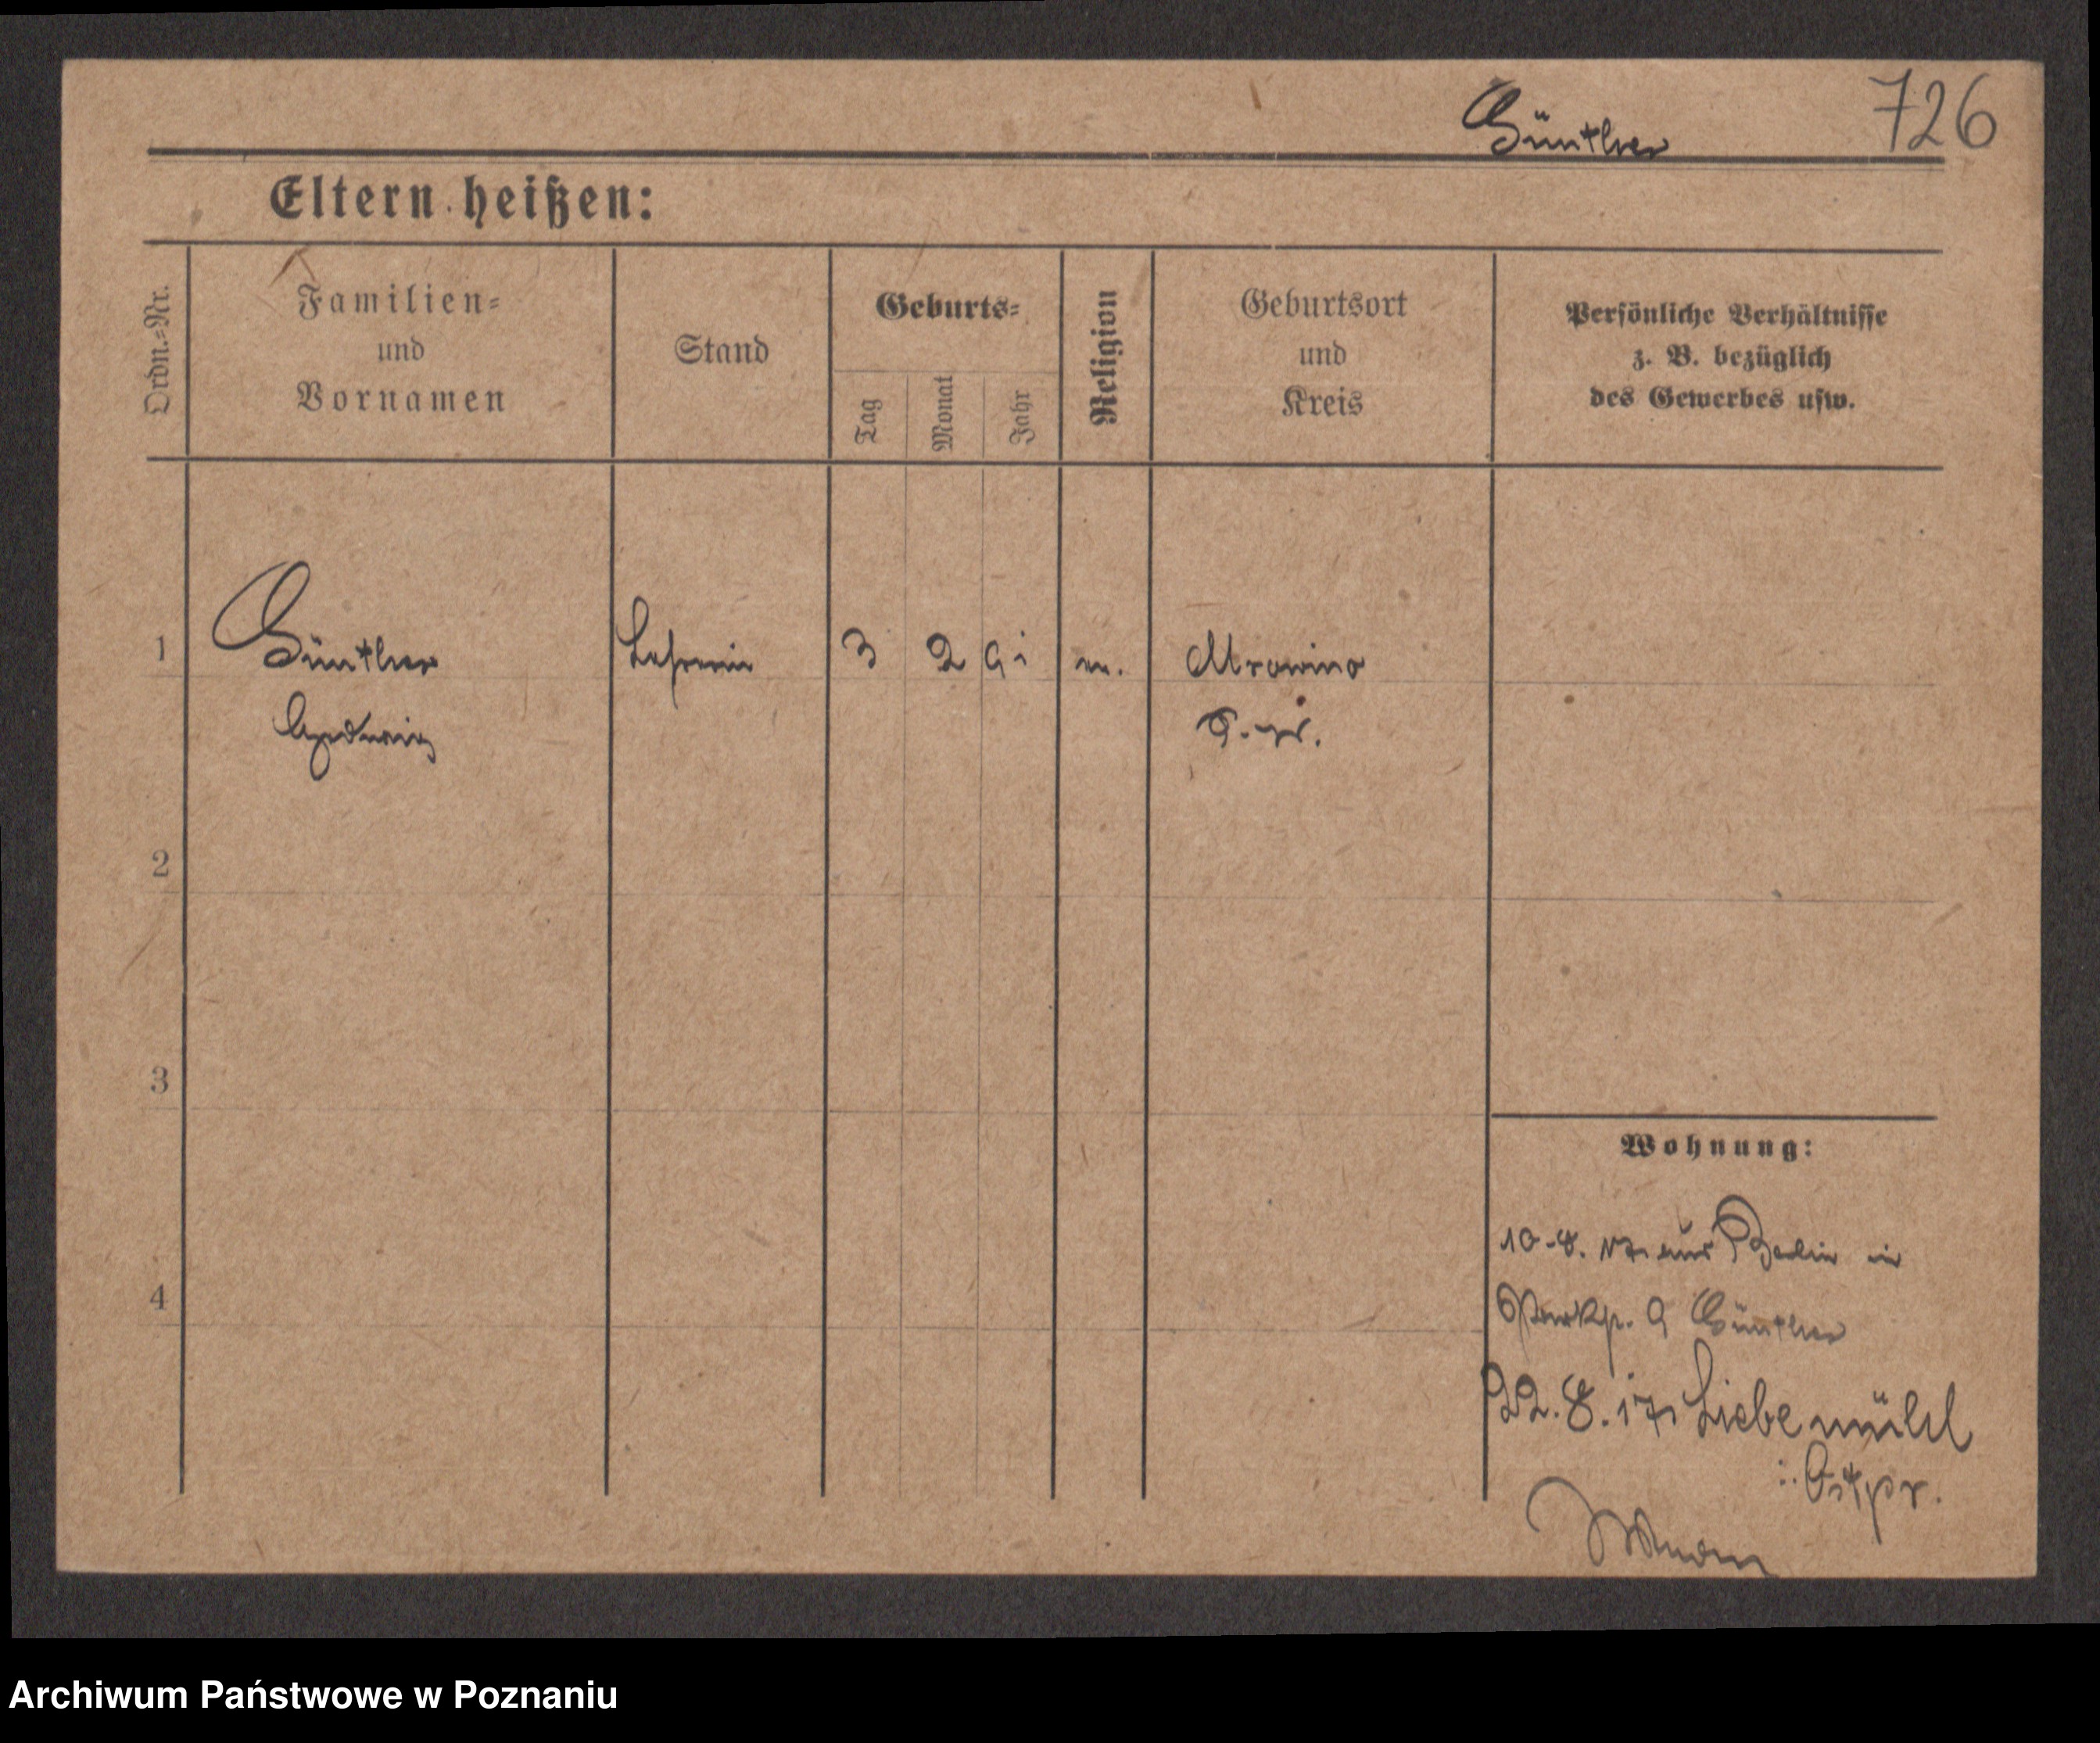 Günther 726
Eltern heißen:
Ordn.-Nr.
Familien-
und
Vornamen
Stand
Geburts-
Tag
Monat
Jahr
Religion
Geburtsort
und
Kreis
Persönliche Verhältnisse
z. B. bezüglich
des Gewerbes usw.
1 Günther Lehrerin 3 2 91 ev. Mrowino
Hedwig
2
3
4
Wohnung:
10.8.17 aus Berlin in
9 Günther
22.8.17 Liebemühl
i. Ostpr.
Archiwum Państwowe w Poznaniu